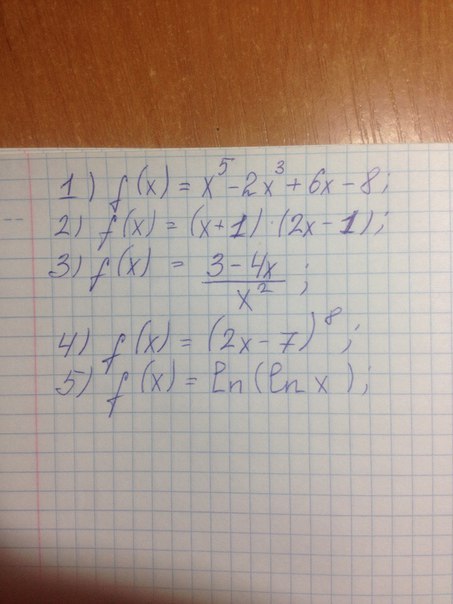 1) f(x) = x⁵ - 2x³ + 6x - 8;
2) f(x) = (x+1)·(2x-1);
3) f(x) = (3-4x)/x²;
4) f(x) = (2x-7)⁸;
5) f(x) = ln(ln x);